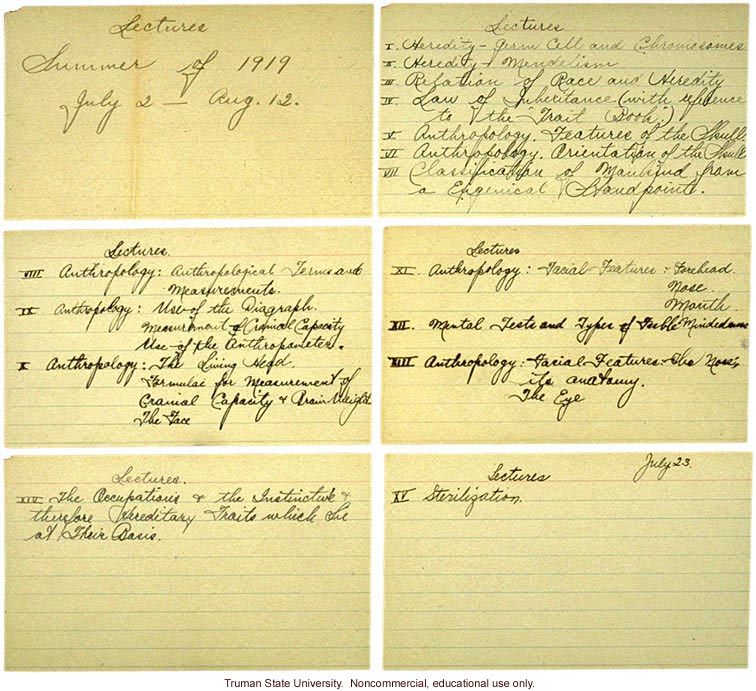 Lectures
Summer of 1919
July 2 — Aug. 12.
Lectures
I. Heredity - Germ Cell and Chromosomes
II Heredity & Mendelism
III Relation of Race and Heredity
IV Law of Inheritance (with reference
to "the Trait Book")
V Anthropology. Features of the Skull
VI Anthropology. Orientation of the Skull
VII Classification of Mankind from
a Eugenical Standpoint.
Lectures.
VIII Anthropology: Anthropological Terms and
Measurements.
IX Anthropology: Use of the Diagraph.
Measurement of Cranial Capacity
Use of the Anthropometer.
X Anthropology: The Living Head.
Formulae for Measurement of
Cranial Capacity & Brain Weight
The Face
Lectures
XI. Anthropology: Facial Features: Forehead.
Nose.
Mouth.
XII. Mental Tests and Types of Feeble Mindedness
XIII Anthropology: Facial Features: The Nose,
its anatomy.
The Eye
Lectures.
XIV The Occupations & the Instinctive &
therefore Hereditary Traits which Lie
at Their Basis.
July 23.
Lectures
XV Sterilization.
Truman State University. Noncommercial, educational use only.